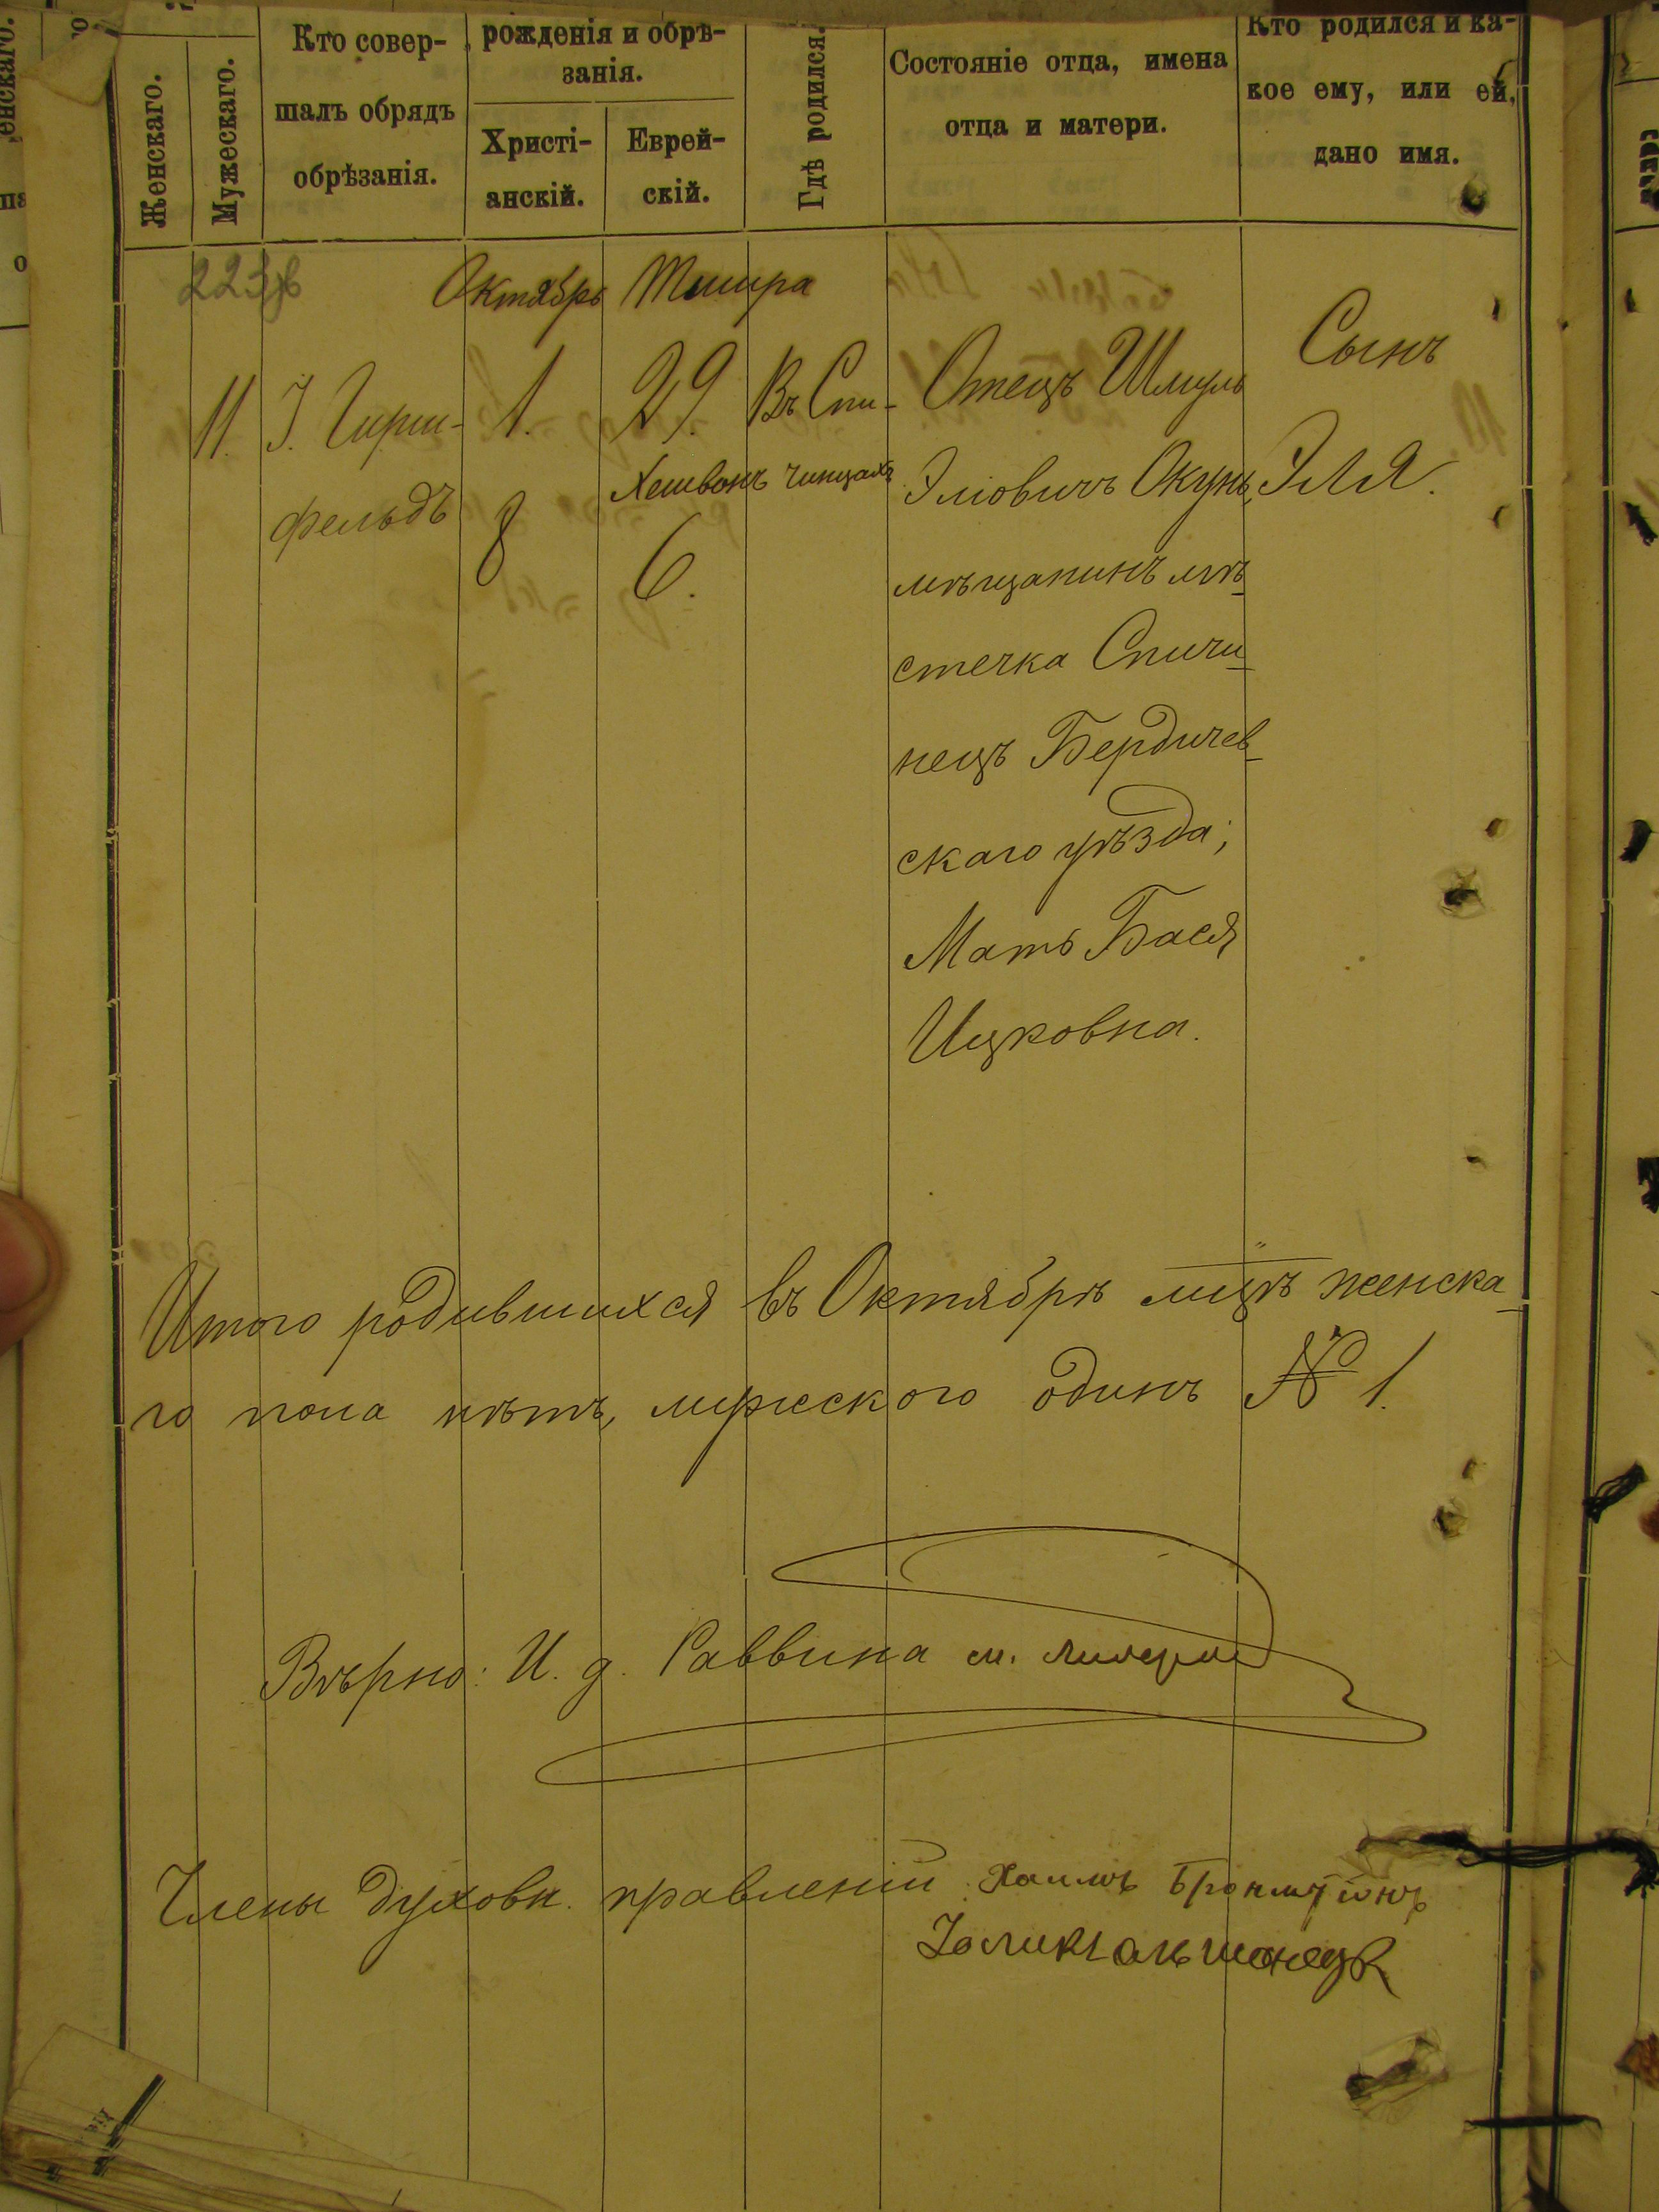 Женскаго.
Мужескаго.
Кто совер-
шалъ обрядъ
обрѣзанія.
рожденія и обрѣ-
занія.
Христі-
анскій.
Еврей-
скій.
Гдѣ родился.
Состояніе отца, имена
отца и матери.
Кто родился и ка-
кое ему, или ей,
дано имя.
Октябрь Тишра
11. І. Гирш-
фельдъ
1.
8
29.
Хешвонъ
6.
Въ Спи-
чинцахъ
Отецъ Шмуль
Эліовичъ Окунь,
мѣщанинъ мѣ-
стечка Спичи-
нецъ Бердичев-
скаго уѣзда;
Мать Бася
Ицковна.
Сынъ
Эля.
Итого родившихся въ Октябрѣ мцѣ женска-
го пола нѣтъ, мужескаго одинъ № 1.
Вѣрно: И. д. Раввина
Члены духовн. правленій Хаимъ